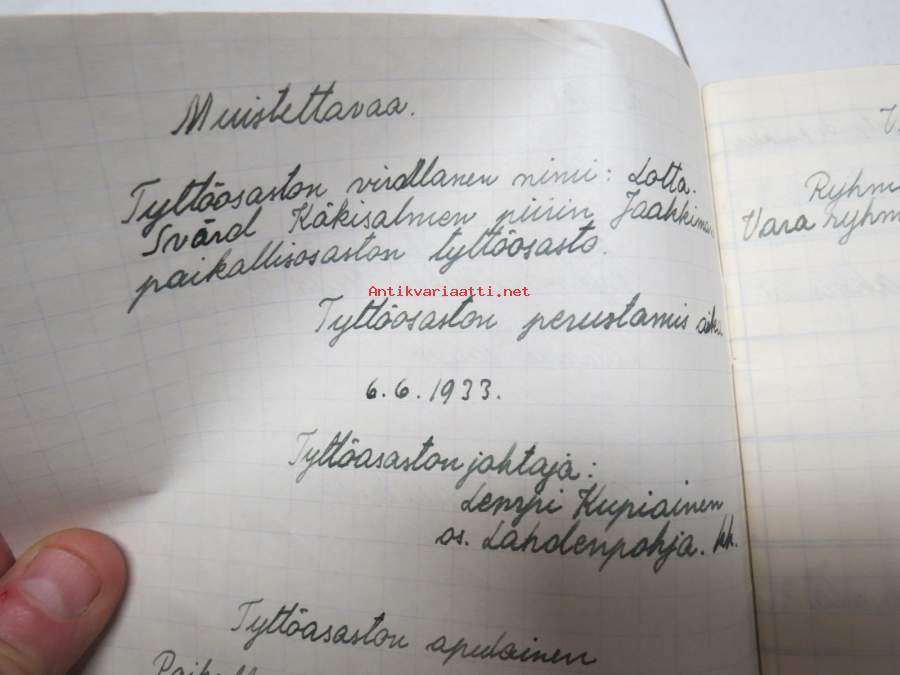 Muistettavaa.
Tyttöosaston virallanen nimi: Lotta-
Svärd Käkisalmen piirin Jaakkiman
paikallisosaston tyttöosasto.
Antikvariaatti.net
Tyttöosaston perustamis aika
6.6.1933.
Tyttöasaston johtaja:
Lempi Kupiainen
os. Lahdenpohja. kk.
Tyttöasaston apulainen
Ryhm
Vara ryhm